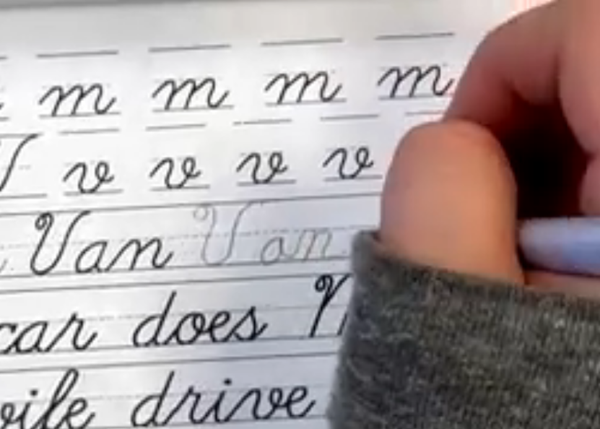 m m m m
V v v v v
Van Van
car does
drive